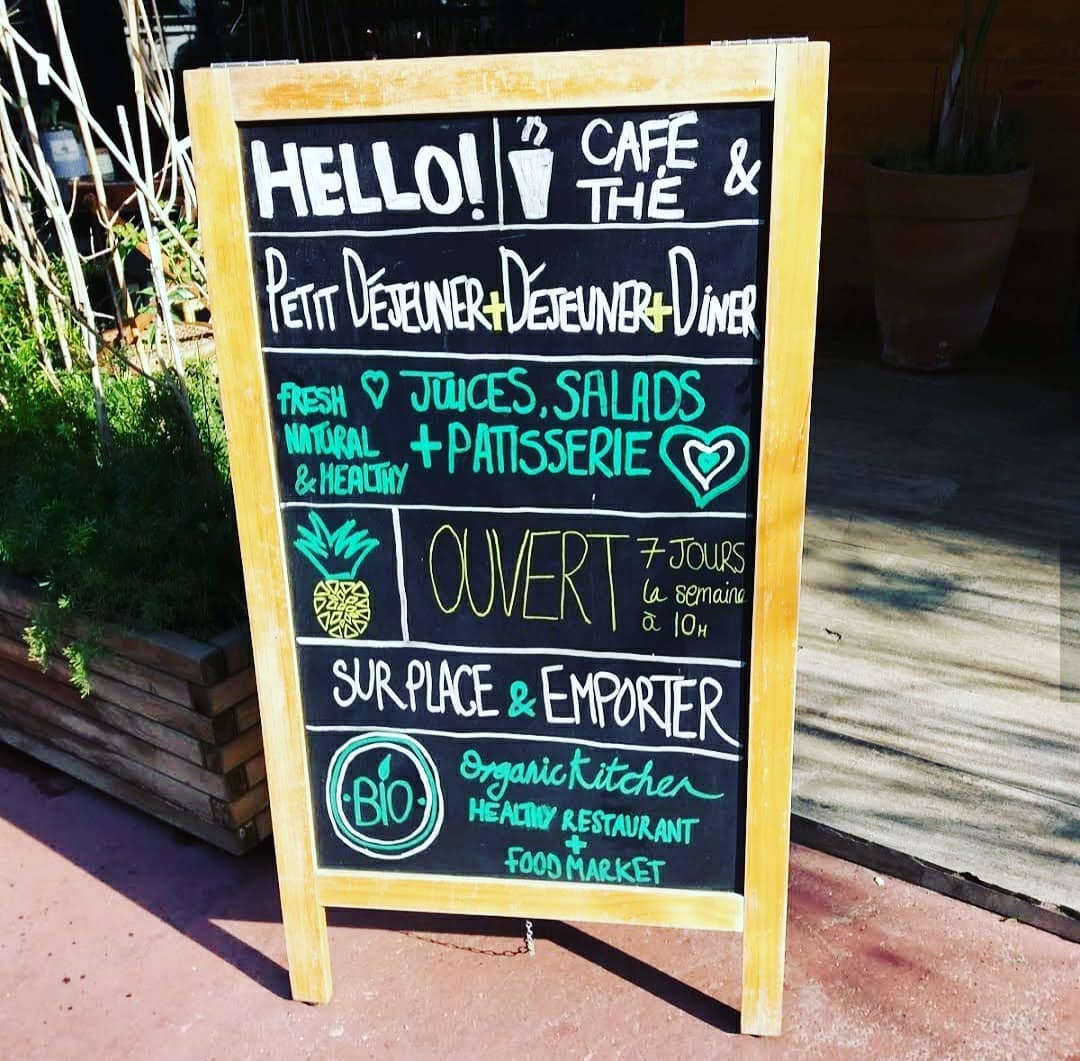 HELLO!
CAFÉ
THÉ &
PETIT DÉJEUNER+DÉJEUNER+DINER
FRESH
NATURAL
& HEALTHY
JUICES, SALADS
+PATISSERIE
OUVERT
7 JOURS
la semaine
à 10H
SUR PLACE & EMPORTER
·BIO·
Organic Kitchen
HEALTHY RESTAURANT
+
FOOD MARKET